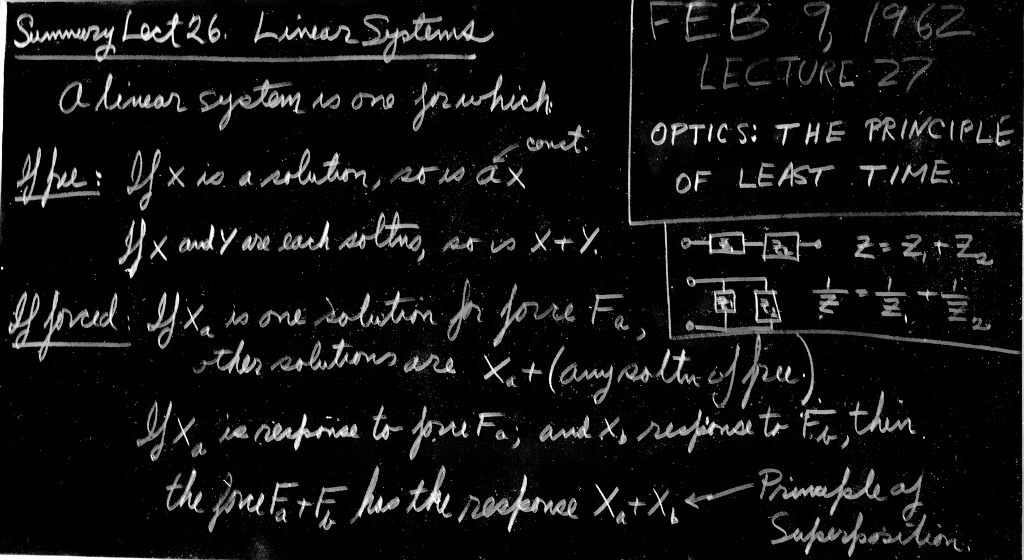 Summary Lect 26. Linear Systems
A linear system is one for which
const.
If free: If X is a solution, so is aX
If X and Y are each soltns, so is X+Y.
If forced: If Xa is one solution for force Fa,
other solutions are Xa+(any soltn of free.)
If Xa is response to force Fa, and Xb response to Fb, then
the force Fa+Fb has the response Xa+Xb ← Principle of
Superposition.
FEB 9, 1962
LECTURE 27
OPTICS: THE PRINCIPLE
OF LEAST TIME.
Z1 Z2 Z = Z1 + Z2
Z1 Z2 1/Z = 1/Z1 + 1/Z2